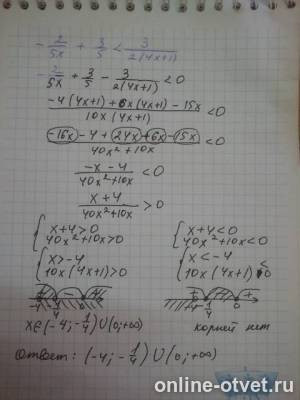 - 2/5x + 3/5 < 3/2(4x+1)
- 2/5x + 3/5 - 3/2(4x+1) < 0
-4(4x+1)+6x(4x+1)-15x / 10x(4x+1) < 0
-16x-4+24x+6x-15x / 40x²+10x < 0
-x-4 / 40x²+10x < 0
x+4 / 40x²+10x > 0
{ x+4>0 { x+4<0
40x²+10x>0 40x²+10x<0
{ x>-4 { x<-4
10x(4x+1)>0 10x(4x+1)<0
-4 -1/4 0 -4 -1/4 0
x∈(-4;-1/4)∪(0;+∞) корней нет
Ответ: (-4;-1/4)∪(0;+∞)
online-otvet.ru